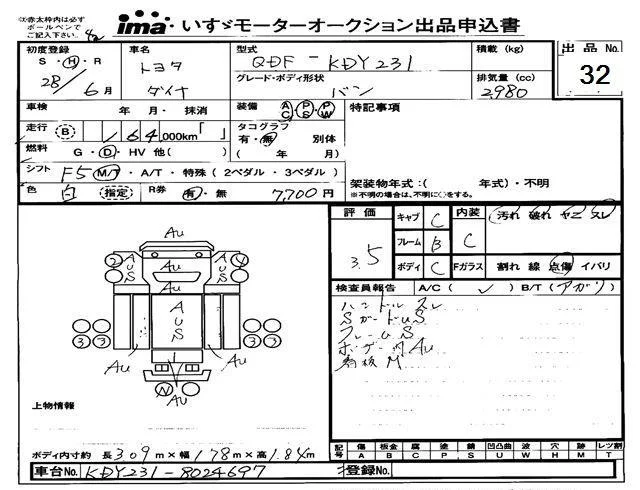 ※赤太枠内は必ず
ボールペンで
ご記入下さい。
ima いすゞモーターオークション出品申込書
初度登録 車名 型式 積載(kg) 出品No.
S・H・R トヨタ QDF-KDY231 32
28/6月 ダイナ グレード・ボディ形状 バン 排気量(cc) 2980
車検 年 月・抹消 装備 AC・PS・PW 特記事項
走行 B 164,000km「 」 タコグラフ 有・無 別体
燃料 G・D・HV 他( ) ( 年 月)
シフト F5 M/T・A/T・特殊(2ペダル・3ペダル) 架装物年式:( 年式)・不明
※不明の場合は、不明に○をする。
色 白 指定 R券 有・無 7,700円
評価 3.5 キャブ C 内装 C 汚れ 破れ ヤニ スレ
フレーム B
ボディ C Fガラス 割れ 線 点傷 イバリ
検査員報告 A/C( ✓ ) B/T(アガリ)
ハンドルスレ
SガードUS
フレームS
ボデー内AU
看板M
AU
2 AUS AU AUS 4
AUS
3 3 3 3
AU AU
N
AU
上物情報
ボディ内寸約 長3.09m×幅1.78m×高1.84m
記号 傷 板金 腐 塗 錆 凹凸曲 波 穴 跡 レツ割
A B C P S U W H M T
車台No. KDY231-8024697 登録No.